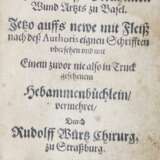 Wund Artzts zu Basel.
Jetzo auffs newe mit Fleiß
nach deß Authoris eignen Schrifften
übersehen und mit
Einem zuvor nie also in Truck
gesehenem
Hebammenbüchlein/
vermehret/
Durch
Rudolff Würtz Chirurg,
zu Straßburg.